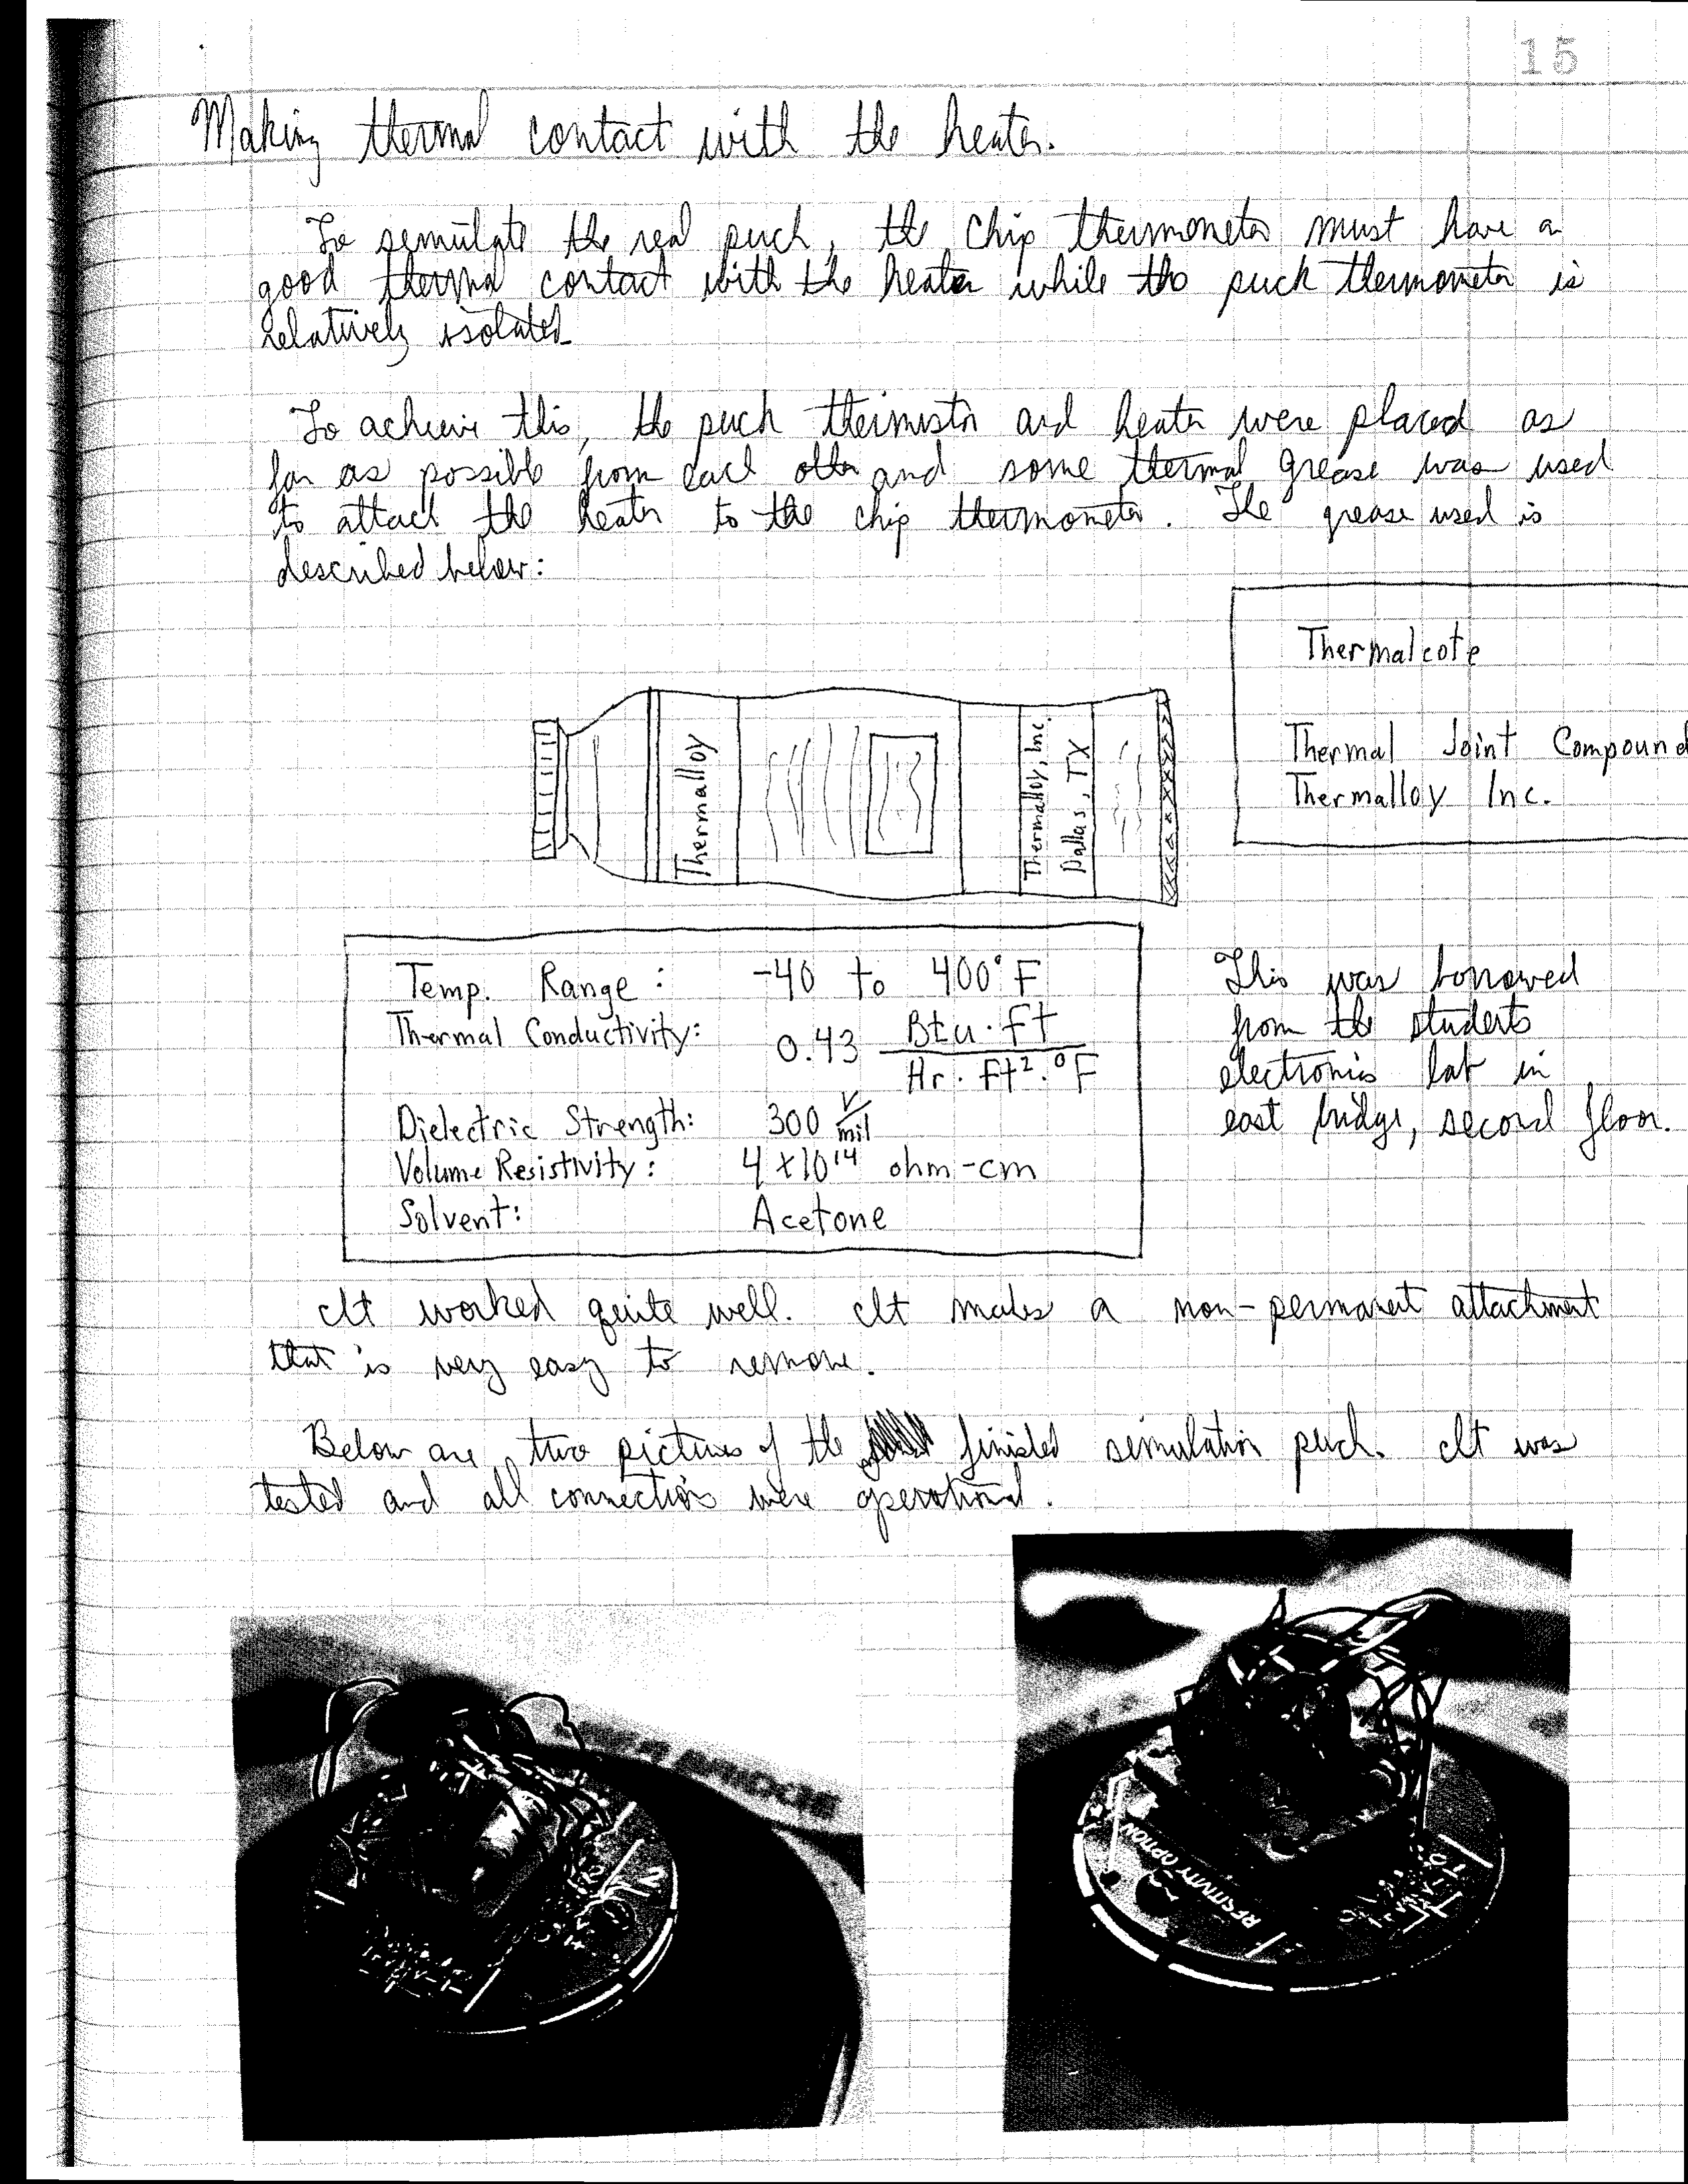 15
Making thermal contact with the heater.
To simulate the real puck, the chip thermometer must have a
good thermal contact with the heater while the puck thermometer is
relatively isolated
To achieve this, the puck thermistor and heater were placed as
far as possible from each other and some thermal grease was used
to attach the heater to the chip thermometer. The grease used is
described below:
Thermalcote
Thermal Joint Compound
Thermalloy Inc.
Thermalloy
Thermalloy, Inc.
Dallas, TX
Temp. Range: -40 to 400°F
Thermal Conductivity: 0.43 Btu·ft / Hr·ft²·°F
Dielectric Strength: 300 V/mil
Volume Resistivity: 4 x 10¹⁴ ohm-cm
Solvent: Acetone
This was borrowed
from the students
electronics lab in
east bridge, second floor.
It worked quite well. It makes a non-permanent attachment
that is very easy to remove.
Below are two pictures of the finished simulation puck. It was
tested and all connections were operational.
RESISTIVITY OPTION